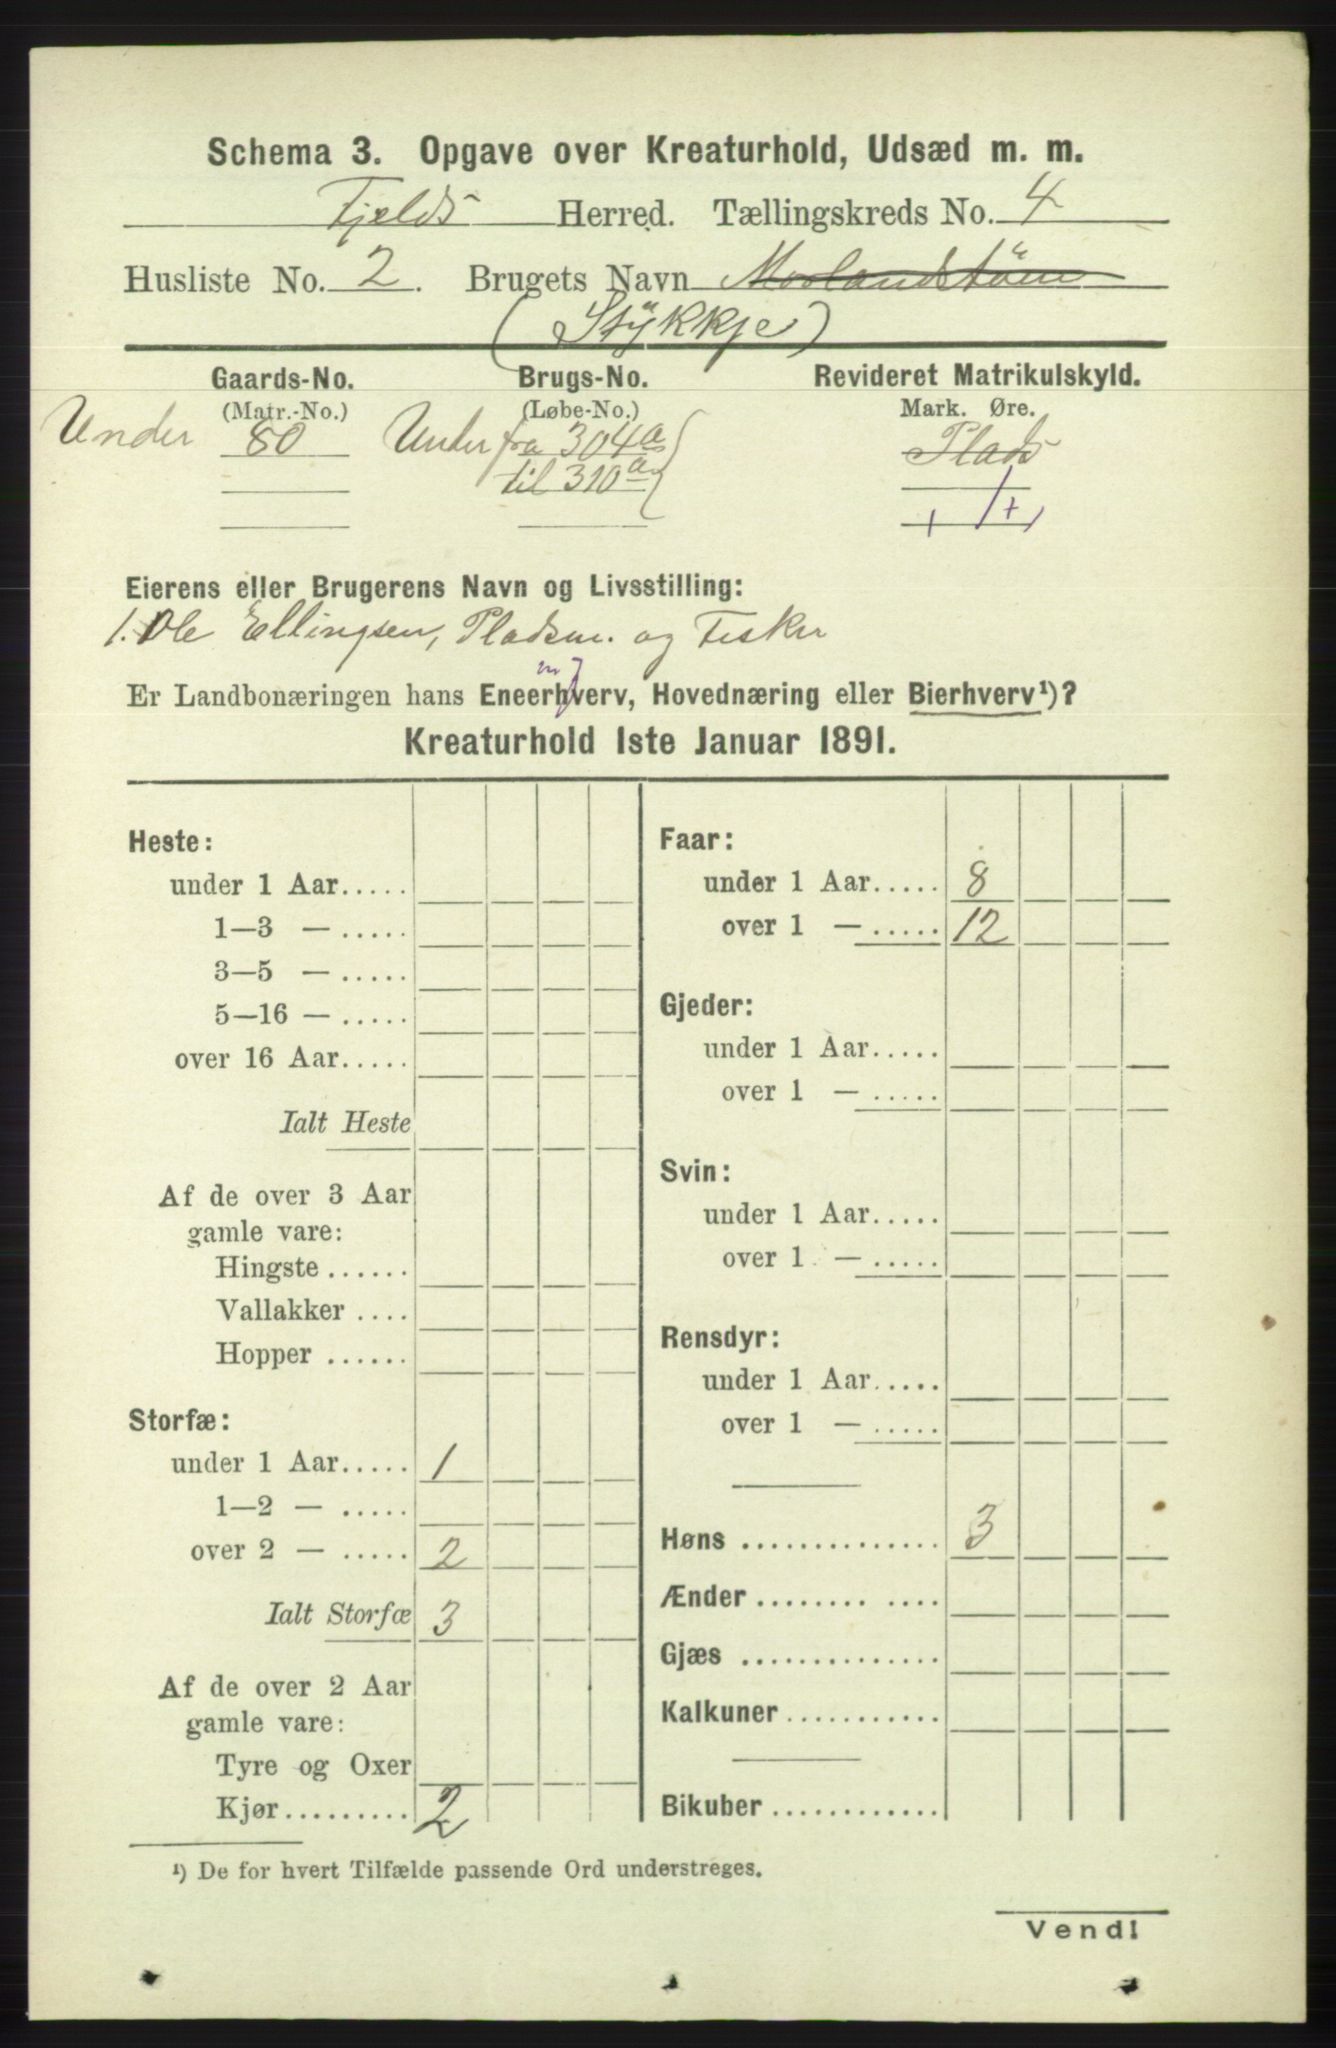 Schema 3. Opgave over Kreaturhold, Udsæd m. m.
Fjelds Herred. Tællingskreds No. 4
Husliste No. 2. Brugets Navn
(Stykkje)
Gaards-No. Brugs-No. Revideret Matrikulskyld.
(Matr.-No.) (Løbe-No.) Mark. Øre.
Under 80 Under fra 304a Plads
til 310a
Eierens eller Brugerens Navn og Livsstilling:
1. Ole Ellingsen, Pladsm. og Fisker
Er Landbonæringen hans Eneerhverv, Hovednæring eller Bierhverv¹)?
Kreaturhold 1ste Januar 1891.
Heste:
under 1 Aar.....
1—3 — .....
3—5 — .....
5—16 — .....
over 16 Aar.....
Ialt Heste
Af de over 3 Aar
gamle vare:
Hingste ......
Vallakker ....
Hopper ......
Storfæ:
under 1 Aar..... 1
1—2 — .....
over 2 — ..... 2
Ialt Storfæ 3
Af de over 2 Aar
gamle vare:
Tyre og Oxer
Kjør......... 2
Faar:
under 1 Aar..... 8
over 1 — ..... 12
Gjeder:
under 1 Aar.....
over 1 — .....
Svin:
under 1 Aar.....
over 1 — .....
Rensdyr:
under 1 Aar.....
over 1 — .....
Høns .............. 3
Ænder ........ ....
Gjæs ..............
Kalkuner ...........
Bikuber ............
¹) De for hvert Tilfælde passende Ord understreges.
Vend!